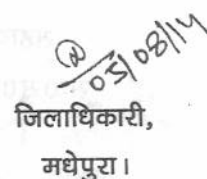 05/08/14
जिलाधिकारी,
मधेपुरा।